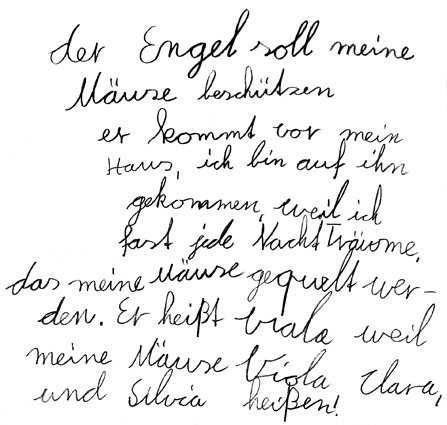 der Engel soll meine
Mäuse beschützen
er kommt vor mein
Haus, ich bin auf ihn
gekommen, weil ich
fast jede Nacht Träume,
das meine Mäuse gequelt wer-
den. Er heißt Viala weil
meine Mäuse Viola Clara,
und Silvia heißen!